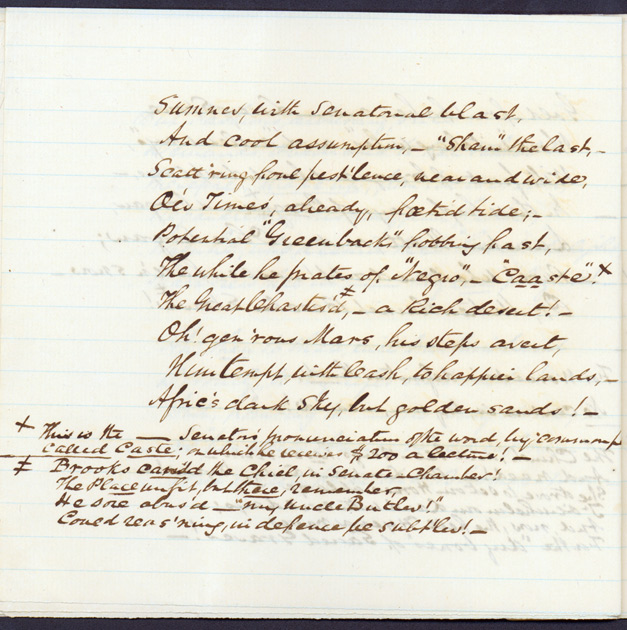 Sumner, with Senatorial blast,
And cool assumption, – "Sham" the last, –
Scatt'ring foul pest'lence, near and wide,
O'er Time's, already, foetid tide; –
Potential "Greenbacks" fobbing fast,
The while he prates of "Negro", – "Caaste"! ☓
The Great Chastis'd ‡, – a Rich desert! –
Oh! gen'rous Mars, his steps avert,
Him tempt, with Cash, to happier lands, –
Afric's dark sky, but golden sands! –
☓ This is the —— Senator's pronunciation of the word, by common
called Caste; on which he receives $200 a lecture! –
‡ Brooks can'd the Chief, in Senate-Chamber!
The Place unfit, but there, remember,
He sore abus'd – "my Uncle Butler!"
Could reas'ning, in defence be subt'ler! –